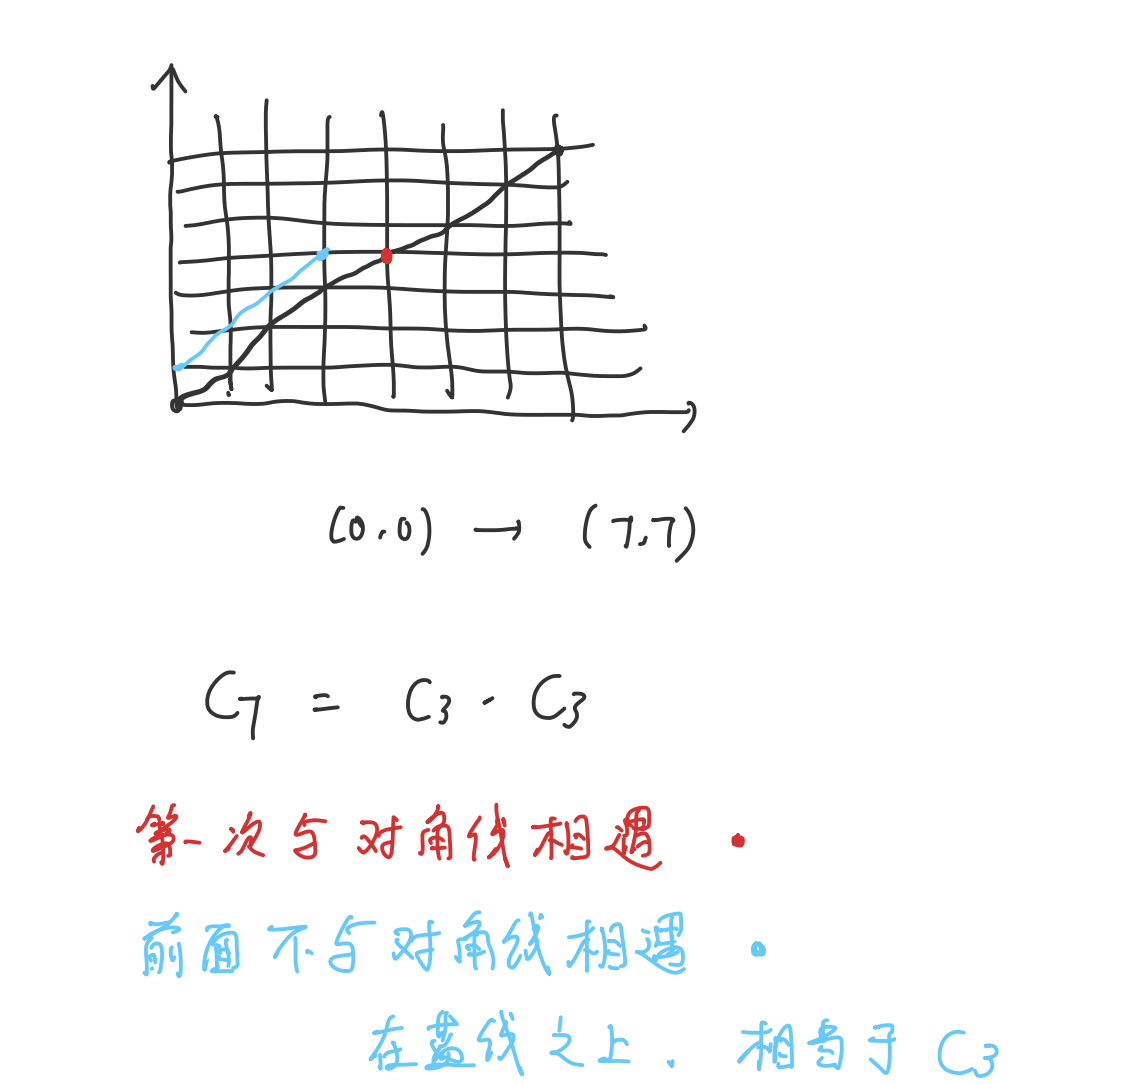 (0,0) → (7,7)
C7 = C3 · C3
第一次与对角线相遇
前面不与对角线相遇
在蓝线之上. 相当于 C3